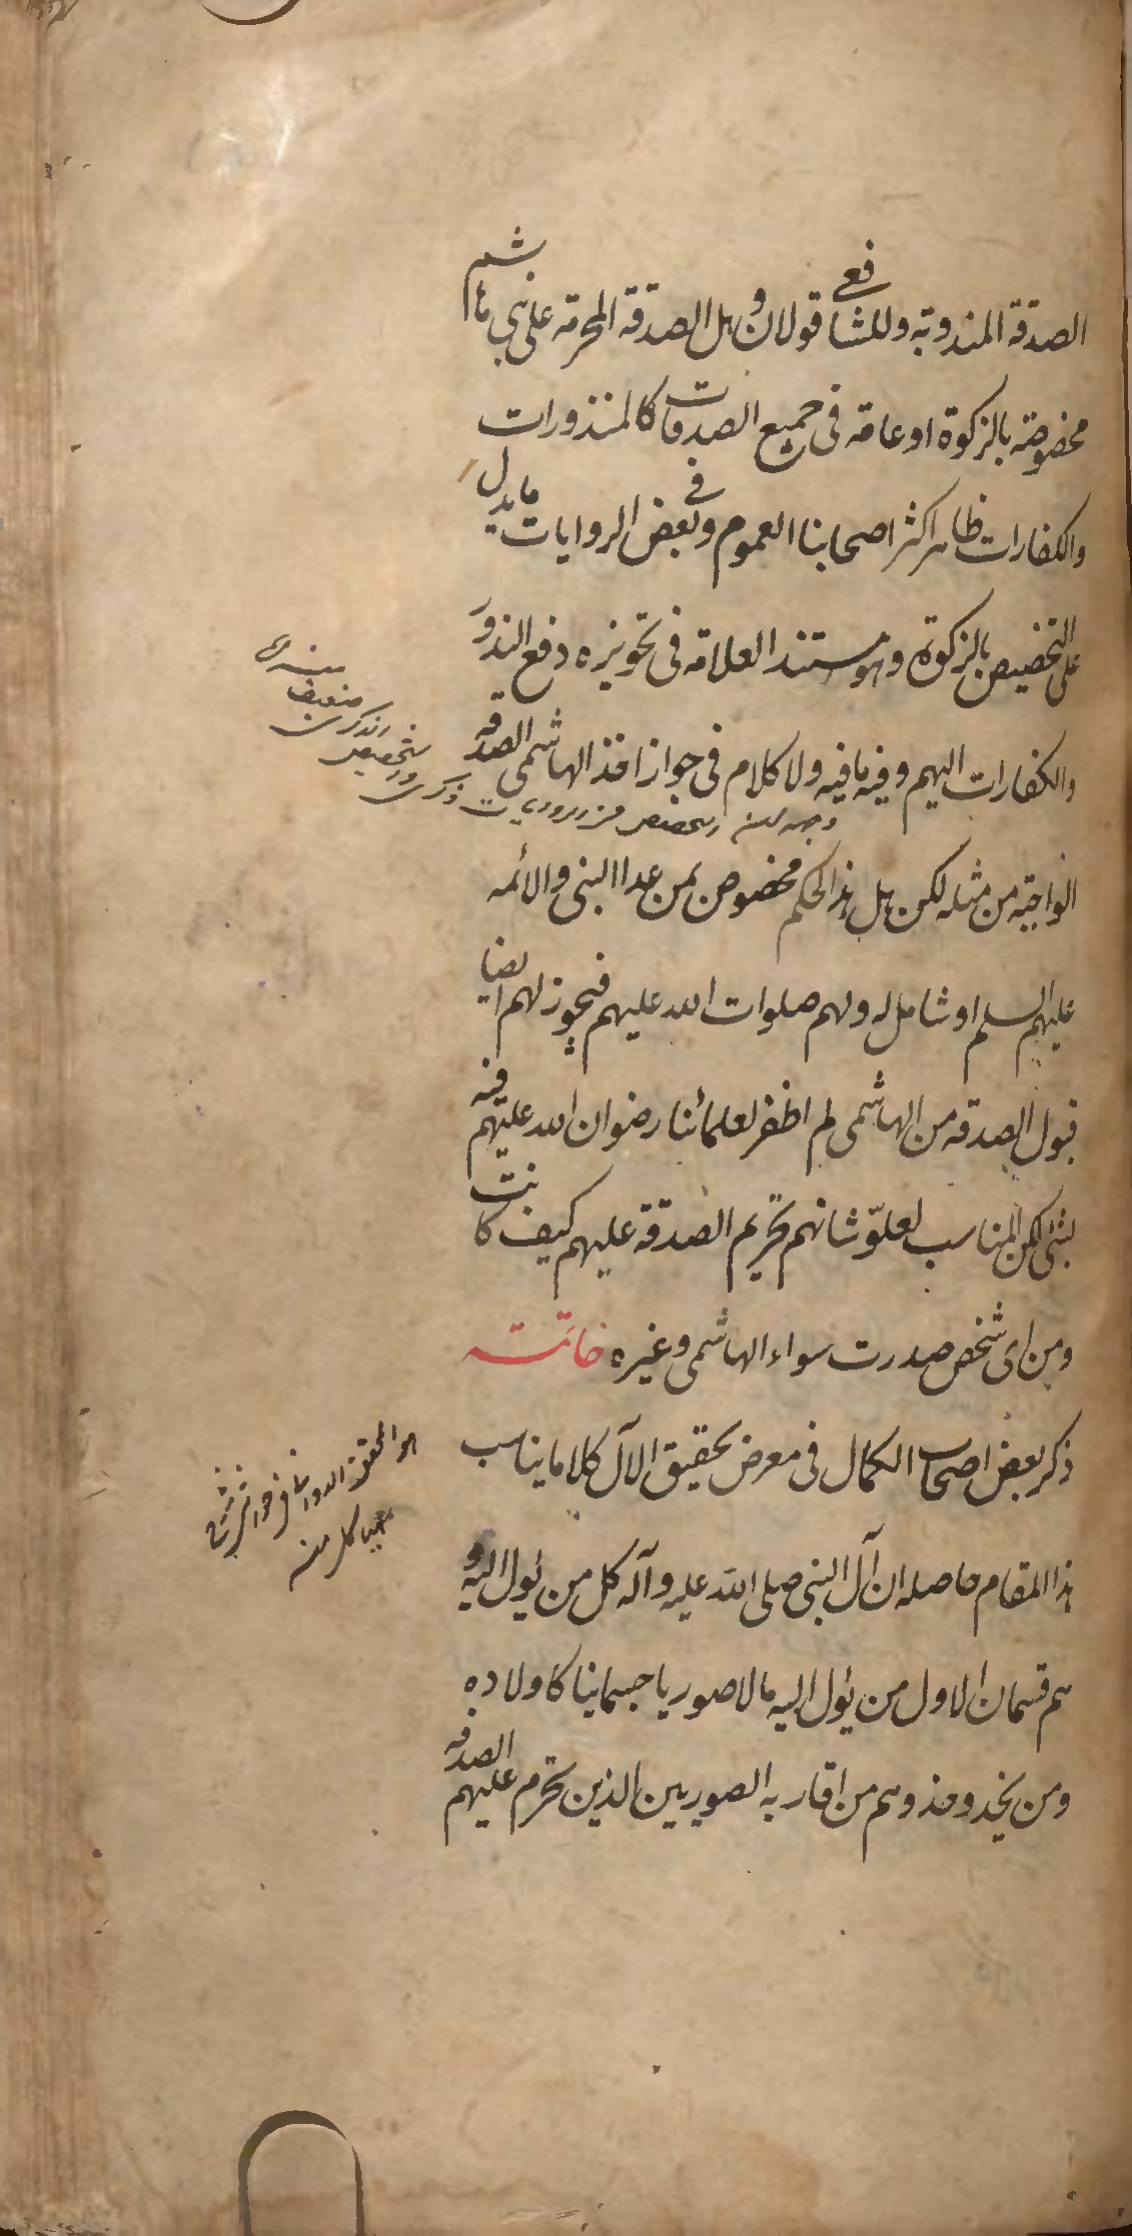 الصدقة المندوبة وللشافعي قولان وهل الصدقة المحرمة على بني هاشم
مخصوصة بالزكوة او عامة في جميع الصدقات كالمنذورات
والكفارات ظاهر اكثر اصحابنا العموم وفي بعض الروايات ما يدل
على التخصيص بالزكوة وهو مستند العلامة في تجويزه دفع النذور
والكفارات اليهم وفيه ما فيه ولا كلام في جواز اخذ الهاشمي الصدقة
الواجبة من مثله لكن هل هذا الحكم مخصوص بمن عدا النبي والائمه
عليهم السلم او شامل له ولهم صلوات الله عليهم فيجوز لهم ايضا
قبول الصدقه من الهاشمي لم اظفر لعلمائنا رضوان الله عليهم فيه
بشئ لكن المناسب لعلوّ شانهم تحريم الصدقة عليهم كيف كانت
ومن اى شخص صدرت سواء الهاشمي وغيره خاتمة
ذكر بعض اصحاب الكمال في معرض تحقيق الآل كلاما يناسب
هذا المقام حاصله ان آل النبي صلى الله عليه وآله كل من يؤل اليه و
هم قسمان الاول من يؤل اليه مآلا صوريا جسمانيا كاولاده
ومن يحذو حذوهم من اقاربه الصوريين الذين تحرم عليهم الصدقة
هو المحقق الدواني في حواشي شرح
الهياكل منه